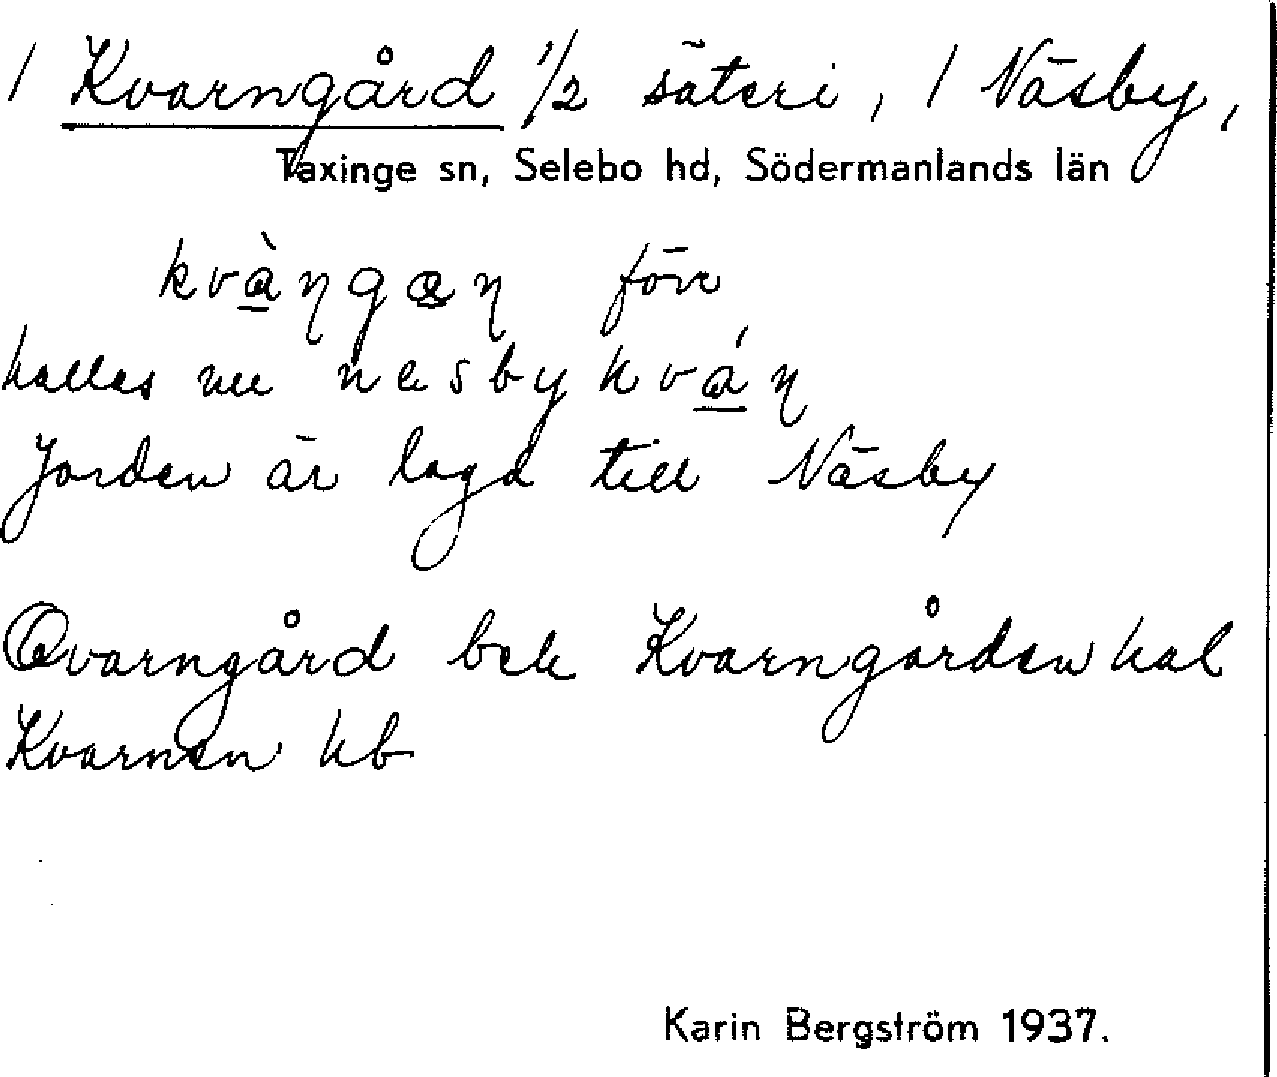 / Kvarngård 1/2 säteri, / Näsby,
Taxinge sn, Selebo hd, Södermanlands län
kvàŋgɑŋ förr
kallas nu nesbykváŋ
Jorden är lagd till Näsby
Qvarngård bek Kvarngården kal
Kvarnen hb
Karin Bergström 1937.